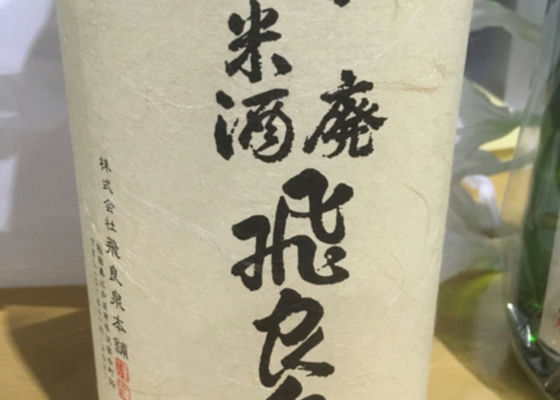 廃
米酒
飛良
株式会社飛良泉本舗